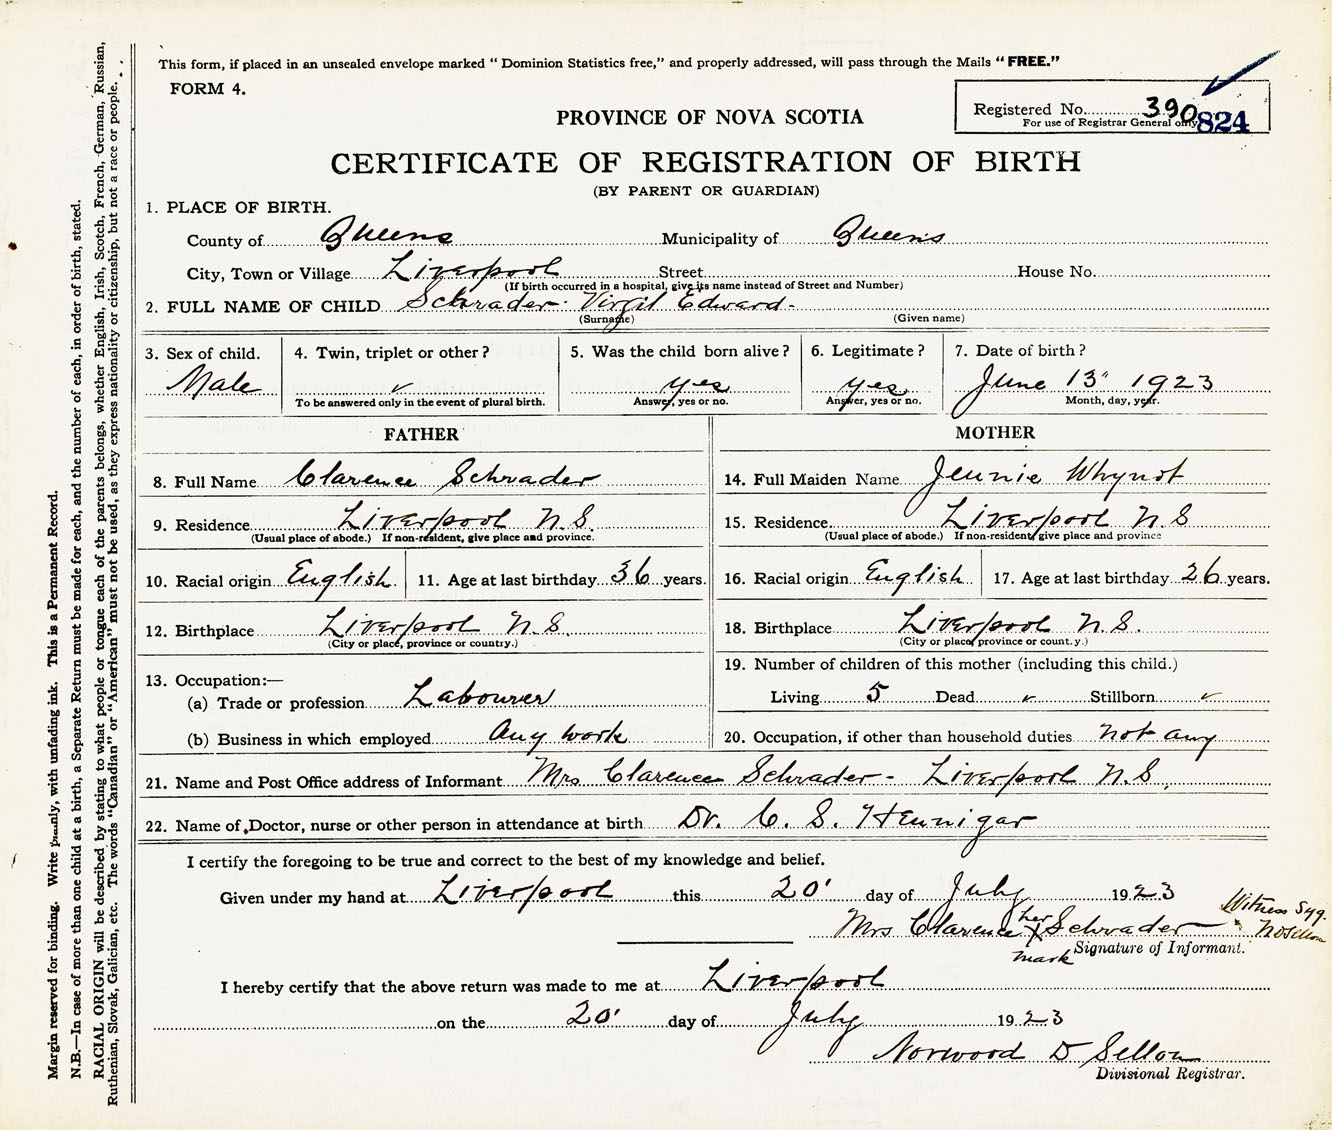 This form, if placed in an unsealed envelope marked “ Dominion Statistics free,” and properly addressed, will pass through the Mails “ FREE.”
FORM 4.
Registered No. 390
For use of Registrar General only
824
PROVINCE OF NOVA SCOTIA
CERTIFICATE OF REGISTRATION OF BIRTH
(BY PARENT OR GUARDIAN)
1. PLACE OF BIRTH.
County of Queens Municipality of Queens
City, Town or Village Liverpool Street House No.
(If birth occurred in a hospital, give its name instead of Street and Number)
2. FULL NAME OF CHILD Schrader - Virgil Edward -
(Surname) (Given name)
3. Sex of child. 4. Twin, triplet or other ? 5. Was the child born alive ? 6. Legitimate ? 7. Date of birth ?
Male ✓ yes yes June 13" 1923
To be answered only in the event of plural birth. Answer, yes or no. Answer, yes or no. Month, day, year.
FATHER MOTHER
8. Full Name Clarence Schrader 14. Full Maiden Name Jennie Whynot
9. Residence Liverpool N.S. 15. Residence Liverpool N S
(Usual place of abode.) If non-resident, give place and province. (Usual place of abode.) If non-resident, give place and province
10. Racial origin English. 11. Age at last birthday 36 years. 16. Racial origin English 17. Age at last birthday 26 years.
12. Birthplace Liverpool N.S. 18. Birthplace Liverpool N.S.
(City or place, province or country.) (City or place, province or country.)
13. Occupation:— 19. Number of children of this mother (including this child.)
(a) Trade or profession Labourer Living 5 Dead ✓ Stillborn ✓
(b) Business in which employed Any work 20. Occupation, if other than household duties not any
21. Name and Post Office address of Informant Mrs Clarence Schrader - Liverpool N.S.
22. Name of Doctor, nurse or other person in attendance at birth Dr. C. S. Hennigar
I certify the foregoing to be true and correct to the best of my knowledge and belief.
Given under my hand at Liverpool this 20' day of July 1923
Mrs Clarence her X Schrader
mark Signature of Informant.
Witness Sig.
N D Sellon
I hereby certify that the above return was made to me at Liverpool
on the 20' day of July 1923
Norwood D Sellon
Divisional Registrar.
Margin reserved for binding. Write plainly, with unfading ink. This is a Permanent Record.
N.B.—In case of more than one child at a birth, a Separate Return must be made for each, and the number of each, in order of birth, stated.
RACIAL ORIGIN will be described by stating to what people or tongue each of the parents belongs, whether English, Irish, Scotch, French, German, Russian,
Ruthenian, Slovak, Galician, etc. The words “Canadian” or “American” must not be used, as they express nationality or citizenship, but not a race or people.